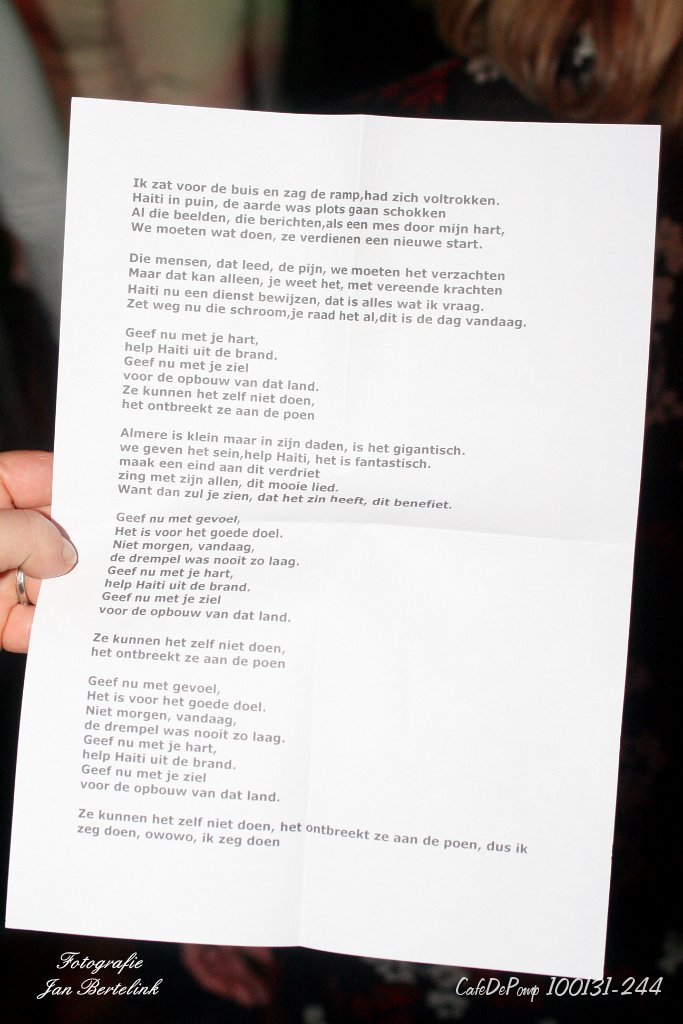 Ik zat voor de buis en zag de ramp,had zich voltrokken.
Haiti in puin, de aarde was plots gaan schokken
Al die beelden, die berichten,als een mes door mijn hart,
We moeten wat doen, ze verdienen een nieuwe start.
Die mensen, dat leed, de pijn, we moeten het verzachten
Maar dat kan alleen, je weet het, met vereende krachten
Haiti nu een dienst bewijzen, dat is alles wat ik vraag.
Zet weg nu die schroom,je raad het al,dit is de dag vandaag.
Geef nu met je hart,
help Haiti uit de brand.
Geef nu met je ziel
voor de opbouw van dat land.
Ze kunnen het zelf niet doen,
het ontbreekt ze aan de poen
Almere is klein maar in zijn daden, is het gigantisch.
we geven het sein,help Haiti, het is fantastisch.
maak een eind aan dit verdriet
zing met zijn allen, dit mooie lied.
Want dan zul je zien, dat het zin heeft, dit benefiet.
Geef nu met gevoel,
Het is voor het goede doel.
Niet morgen, vandaag,
de drempel was nooit zo laag.
Geef nu met je hart,
help Haiti uit de brand.
Geef nu met je ziel
voor de opbouw van dat land.
Ze kunnen het zelf niet doen,
het ontbreekt ze aan de poen
Geef nu met gevoel,
Het is voor het goede doel.
Niet morgen, vandaag,
de drempel was nooit zo laag.
Geef nu met je hart,
help Haiti uit de brand.
Geef nu met je ziel
voor de opbouw van dat land.
Ze kunnen het zelf niet doen, het ontbreekt ze aan de poen, dus ik
zeg doen, owowo, ik zeg doen
Fotografie
Jan Bertelink
CafeDePomp 100131-244